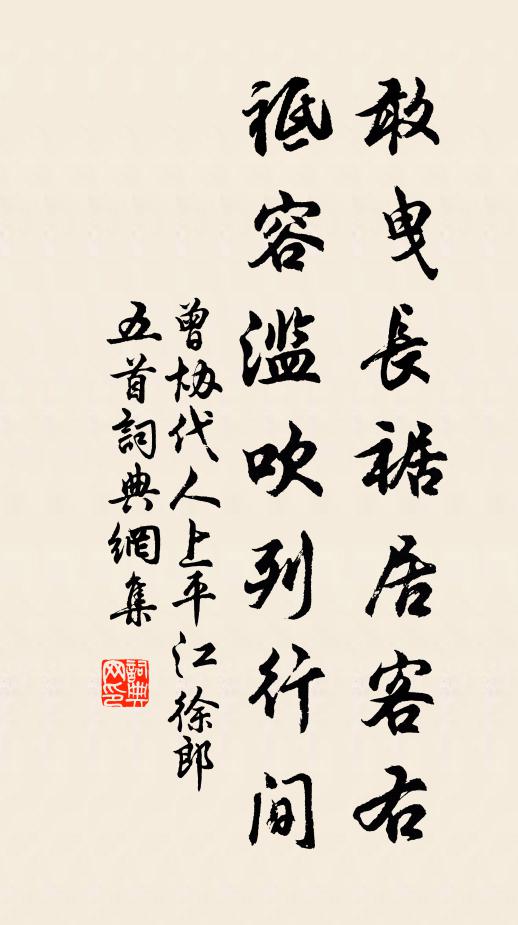 敢曳長裾居客右
祗容濫吹列行間
曾協代人上平江徐郎
五首詞典網集
詞典网印